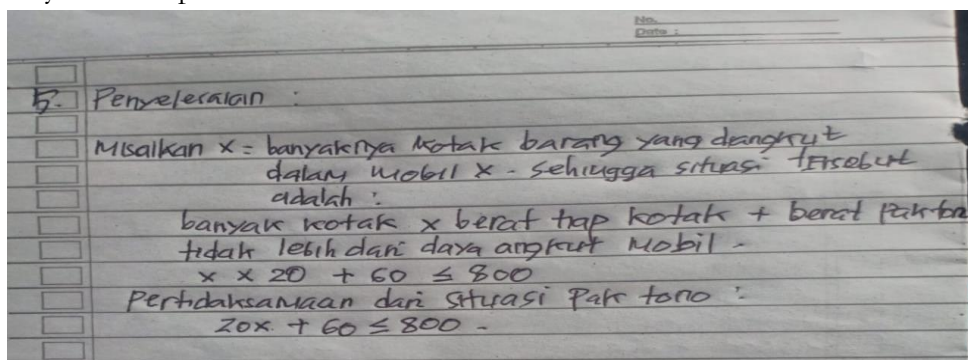 No.
Date :
5. Penyelesaian :
Misalkan x = banyaknya kotak barang yang diangkut
dalam mobil x - sehingga situasi tersebut
adalah :
banyak kotak x berat tiap kotak + berat Pak ton
tidak lebih dari daya angkut mobil -
x x 20 + 60 ≤ 800
Pertidaksamaan dari situasi Pak tono :
20x + 60 ≤ 800 -